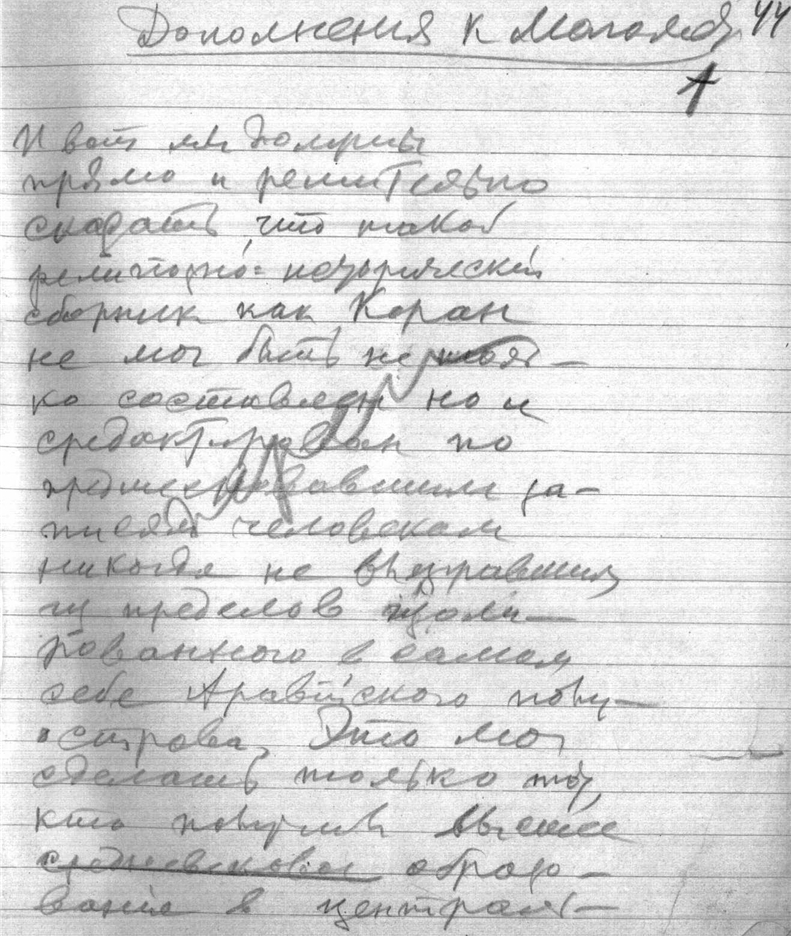 Дополнения к 44
1
И вот мы должны
прямо и решительно
сказать, что такой
религиозно=
сборник как Коран
не мог быть не толь–
ко составлен но и
средактирован по
предшествовавшим за–
писям человеком
никогда не
из пределов изоли–
рованного в самом
себе Аравийского полу–
острова. Это мог
сделать только тот,
кто получил высшее
средневековое образо–
вание в централь–